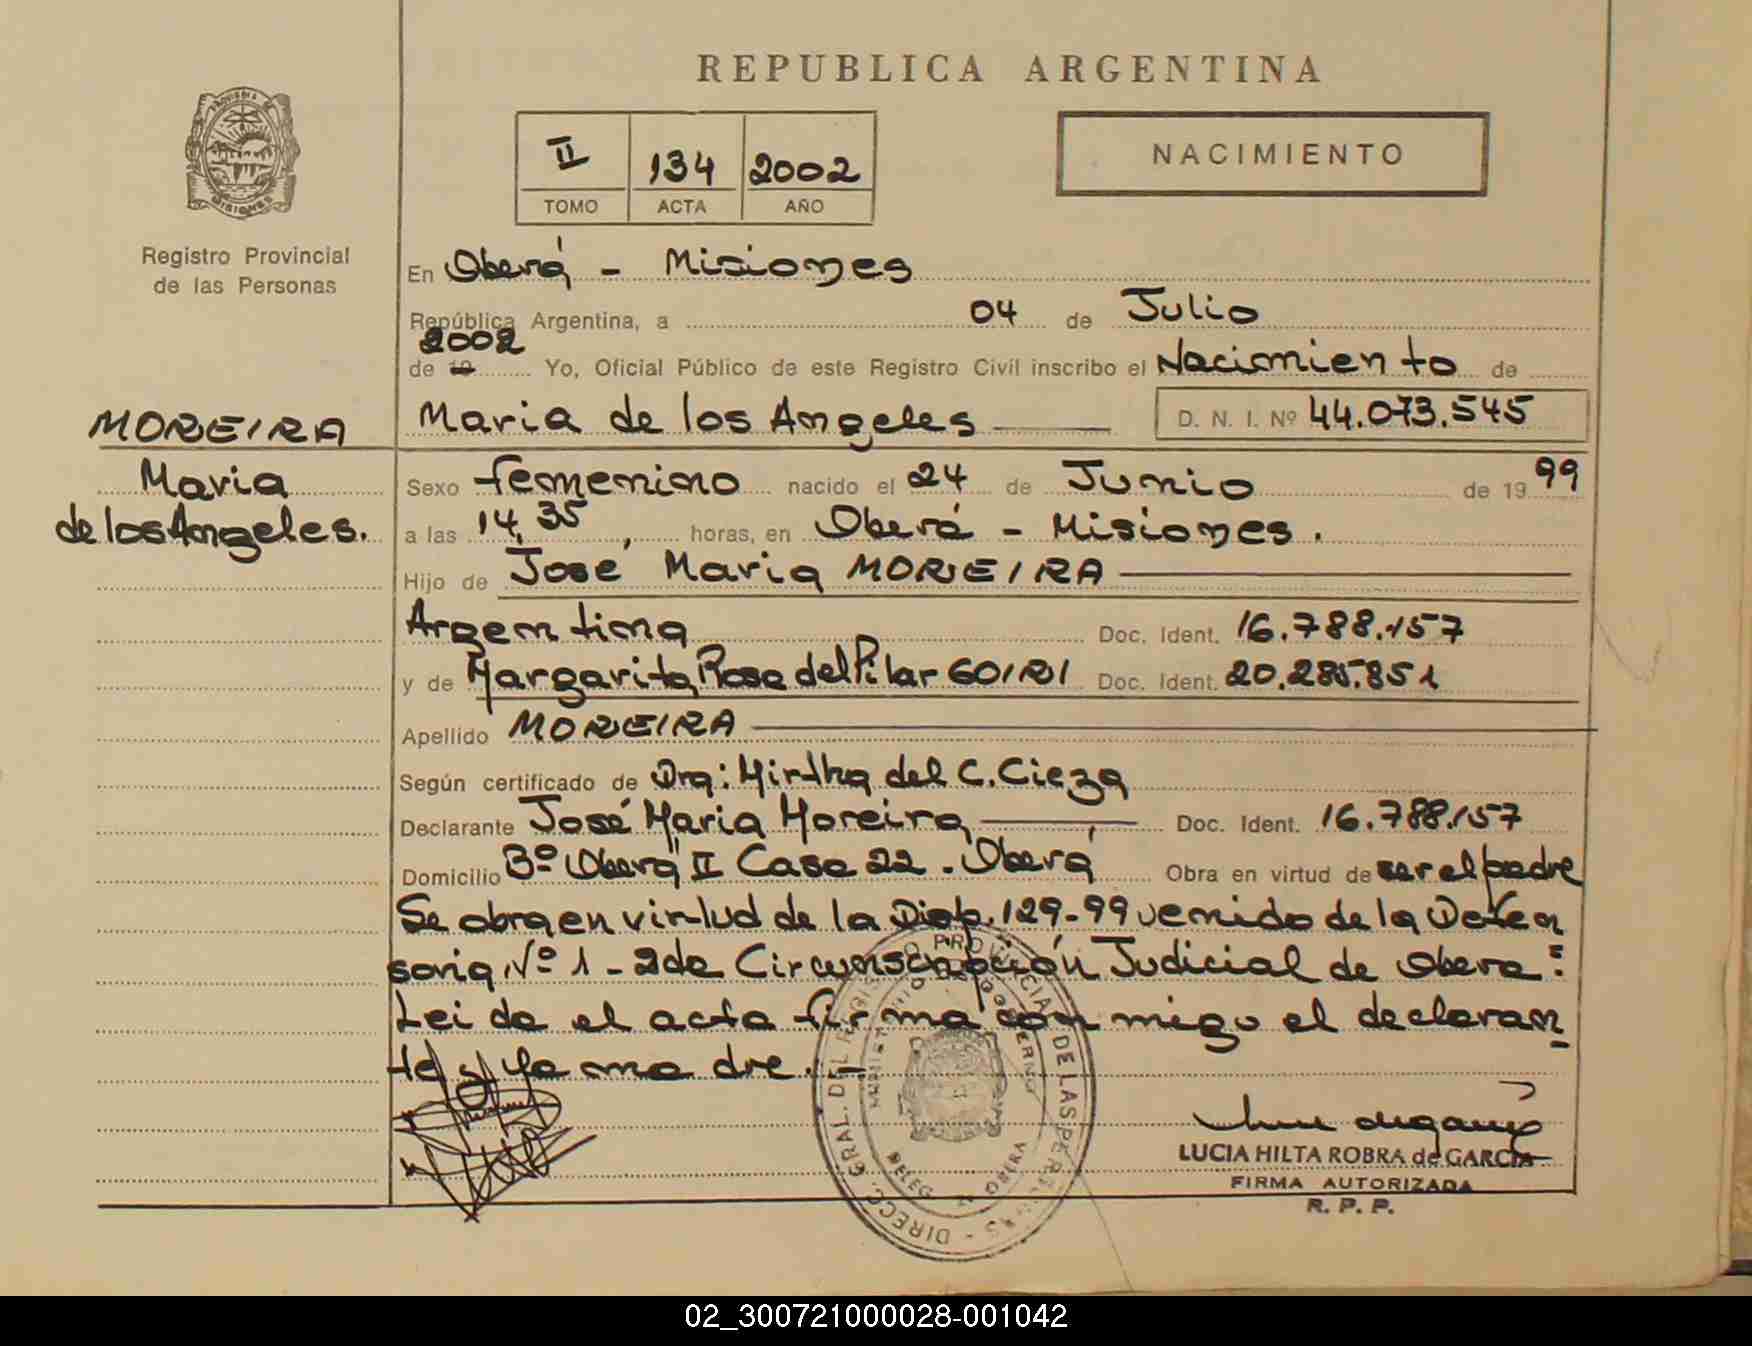 REPUBLICA ARGENTINA
PROVINCIA DE
MISIONES
II 134 2002
TOMO ACTA AÑO
NACIMIENTO
Registro Provincial
de las Personas
En Oberá - Misiones
República Argentina, a 04 de Julio
2002
de 19 Yo, Oficial Público de este Registro Civil inscribo el Nacimiento de
Maria de los Angeles D. N. I. Nº 44.073.545
MOREIRA
Maria
de los Angeles.
Sexo femenino nacido el 24 de Junio de 19 99
a las 14,35, horas, en Oberá - Misiones.
Hijo de José Maria MOREIRA
Argentina Doc. Ident. 16.788.157
y de Margarita Rosa del Pilar Doc. Ident. 20.285.851
Apellido MOREIRA
Según certificado de Dra: Mirtha del C. Cieza
Declarante José Maria Moreira Doc. Ident. 16.788.157
Domicilio Bº Oberá II Casa 22. Oberá Obra en virtud de ser el padre
Se obra en virtud de la Disp. 129-99 venido de la Defen
soria Nº 1 - 2da Circunscripción Judicial de Obera =
Leida el acta firma con migo el declaran
te y la madre. -
DIRECC. GRAL. DEL REGISTRO PROVINCIAL DE LAS PERSONAS
MINISTERIO DE GOBIERNO
DELEG. OBERA
LUCIA HILTA ROBRA de GARCIA
FIRMA AUTORIZADA
R. P. P.
02_300721000028-001042